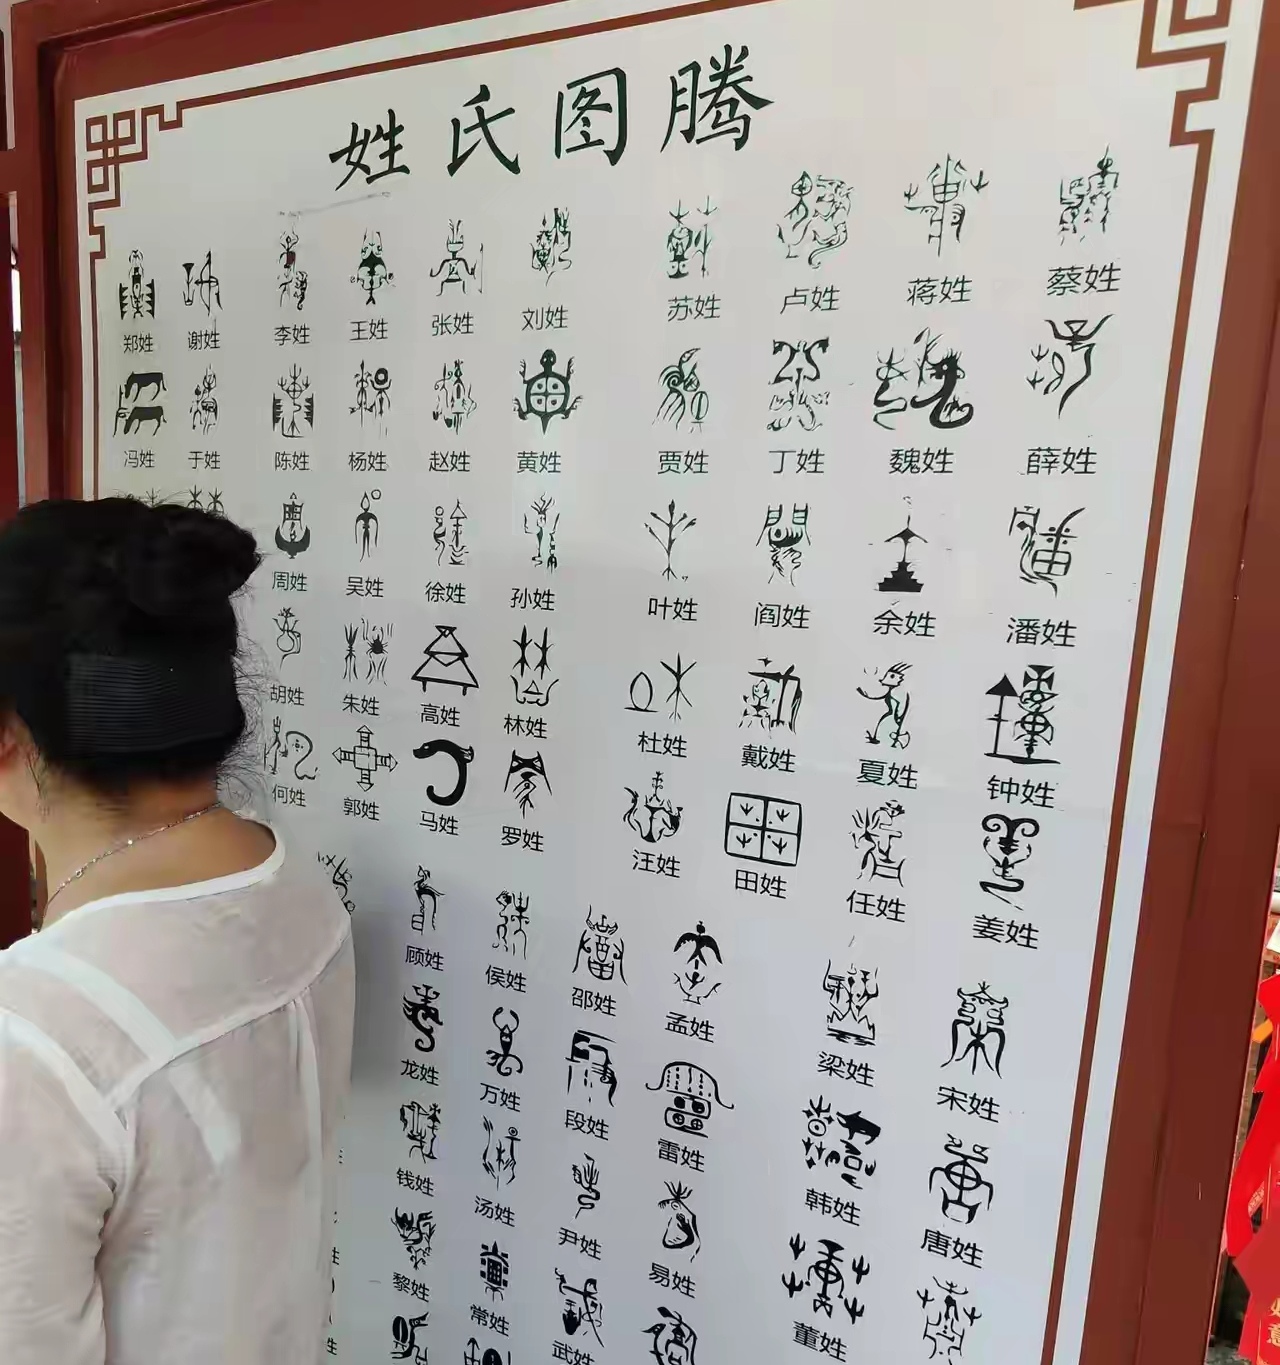 姓氏图腾
郑姓 谢姓 李姓 王姓 张姓 刘姓 苏姓 卢姓 蒋姓 蔡姓
冯姓 于姓 陈姓 杨姓 赵姓 黄姓 贾姓 丁姓 魏姓 薛姓
周姓 吴姓 徐姓 孙姓 叶姓 阎姓 余姓 潘姓
胡姓 朱姓 高姓 林姓 杜姓 戴姓 夏姓 钟姓
何姓 郭姓 马姓 罗姓 汪姓 田姓 任姓 姜姓
顾姓 侯姓 邵姓 孟姓 梁姓 宋姓
龙姓 万姓 段姓 雷姓 韩姓 唐姓
钱姓 汤姓 尹姓 易姓 董姓
黎姓 常姓 武姓